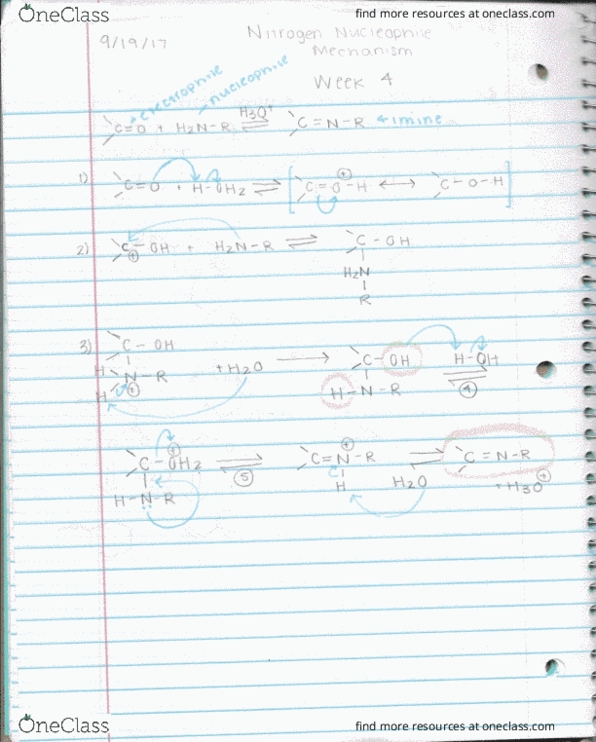 OneClass
find more resources at oneclass.com
9/19/17
Nitrogen Nucleophile
Mechanism
Week 4
electrophile
nucleophile
C=O + H2N-R ⇌ H3O+ C=N-R ← imine
1) C=O + H-OH2 ⇌ [ C=O-H ⊕ ↔ C-O-H ]
2) C-OH ⊕ + H2N-R ⇌ C-OH
H2N
R
3) C-OH + H2O → C-OH H-OH
H N-R ⊕ H-N-R ⇌ ④
H
C-OH2 ⊕ ⇌ ⑤ C=N-R ⊕ ⇌ C=N-R
H-N-R H H2O + H3O ⊕
OneClass
find more resources at oneclass.com